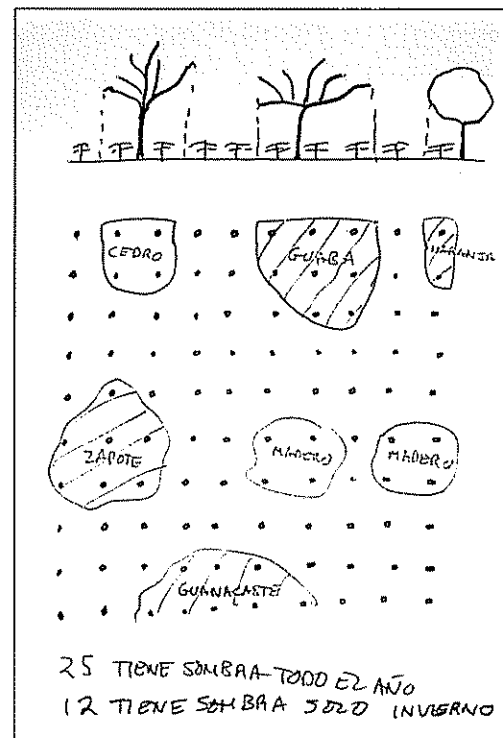 CEDRO
GUABA
NARANJA
ZAPOTE
MADERO
MADERO
GUANACASTE
25 TIENE SOMBRA TODO EL AÑO
12 TIENE SOMBRA SOLO INVIERNO